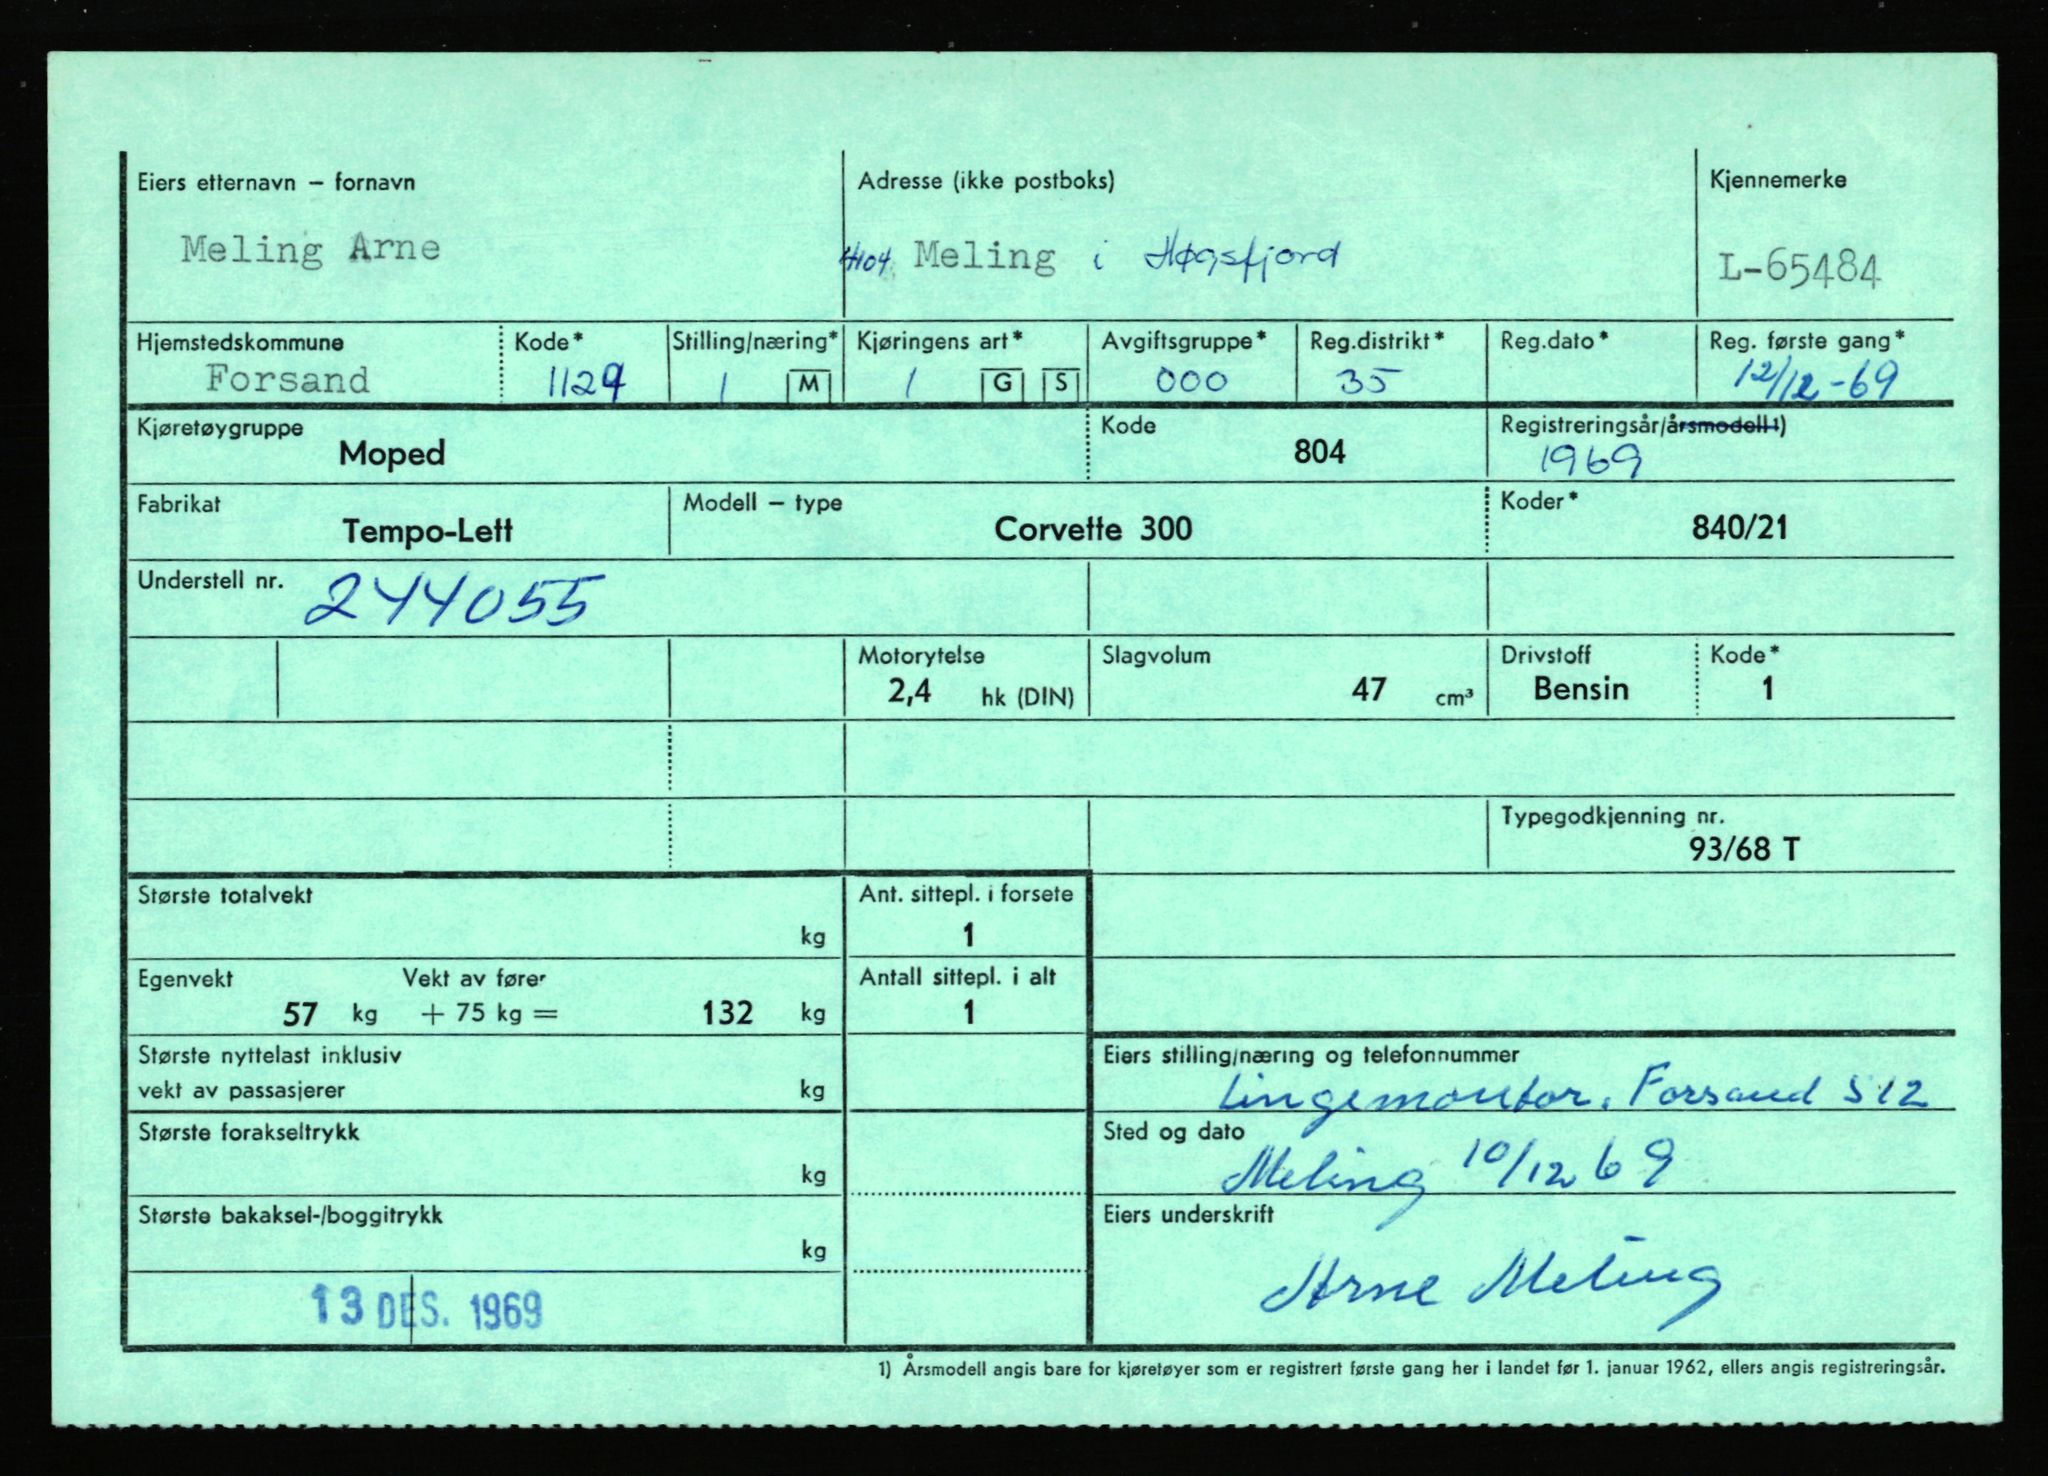 Eiers etternavn – fornavn Adresse (ikke postboks) Kjennemerke
Meling Arne 4104 Meling i Høgsfjord L-65484
Hjemstedskommune Kode* Stilling/næring* Kjøringens art* Avgiftsgruppe* Reg.distrikt* Reg.dato* Reg. første gang*
Forsand 1129 1 M 1 G S 000 35 12/12-69
Kjøretøygruppe Kode Registreringsår/årsmodell 1)
Moped 804 1969
Fabrikat Modell – type Koder*
Tempo-Lett Corvette 300 840/21
Understell nr. 244055
Motorytelse Slagvolum Drivstoff Kode*
2,4 hk (DIN) 47 cm³ Bensin 1
Typegodkjenning nr.
93/68 T
Største totalvekt Ant. sittepl. i forsete
kg 1
Egenvekt Vekt av fører Antall sittepl. i alt
57 kg + 75 kg = 132 kg 1
Største nyttelast inklusiv Eiers stilling/næring og telefonnummer
vekt av passasjerer kg Linjemontør. Forsand 512
Største forakseltrykk Sted og dato
kg Meling 10/12 69
Største bakaksel-/boggitrykk Eiers underskrift
kg Arne Meling
13 DES. 1969
1) Årsmodell angis bare for kjøretøyer som er registrert første gang her i landet før 1. januar 1962, ellers angis registreringsår.